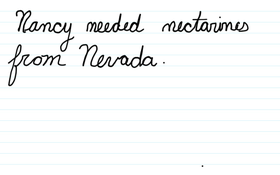 Nancy needed nectarines
from Nevada.